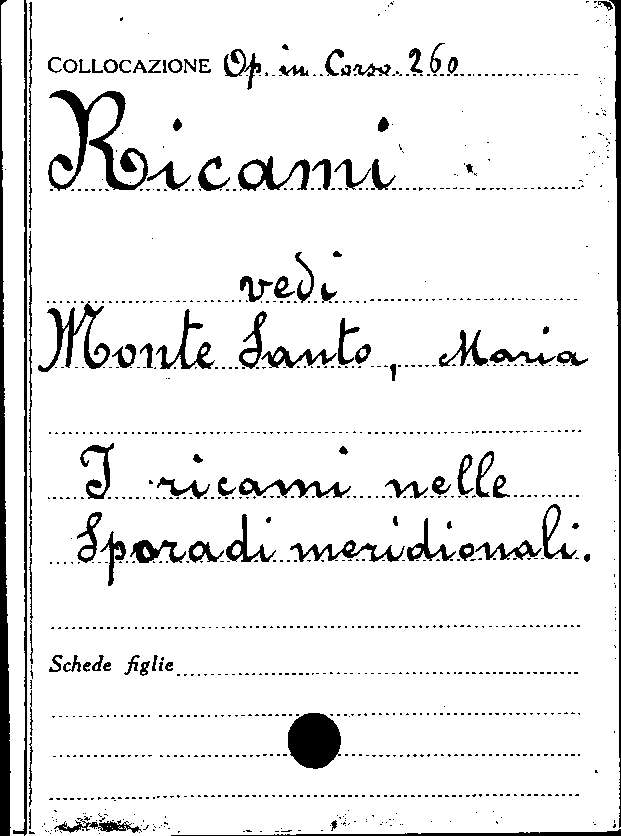 COLLOCAZIONE Op. in Corso. 260
Ricami
vedi
Monte Santo, Maria
I ricami nelle
Sporadi meridionali.
Schede figlie